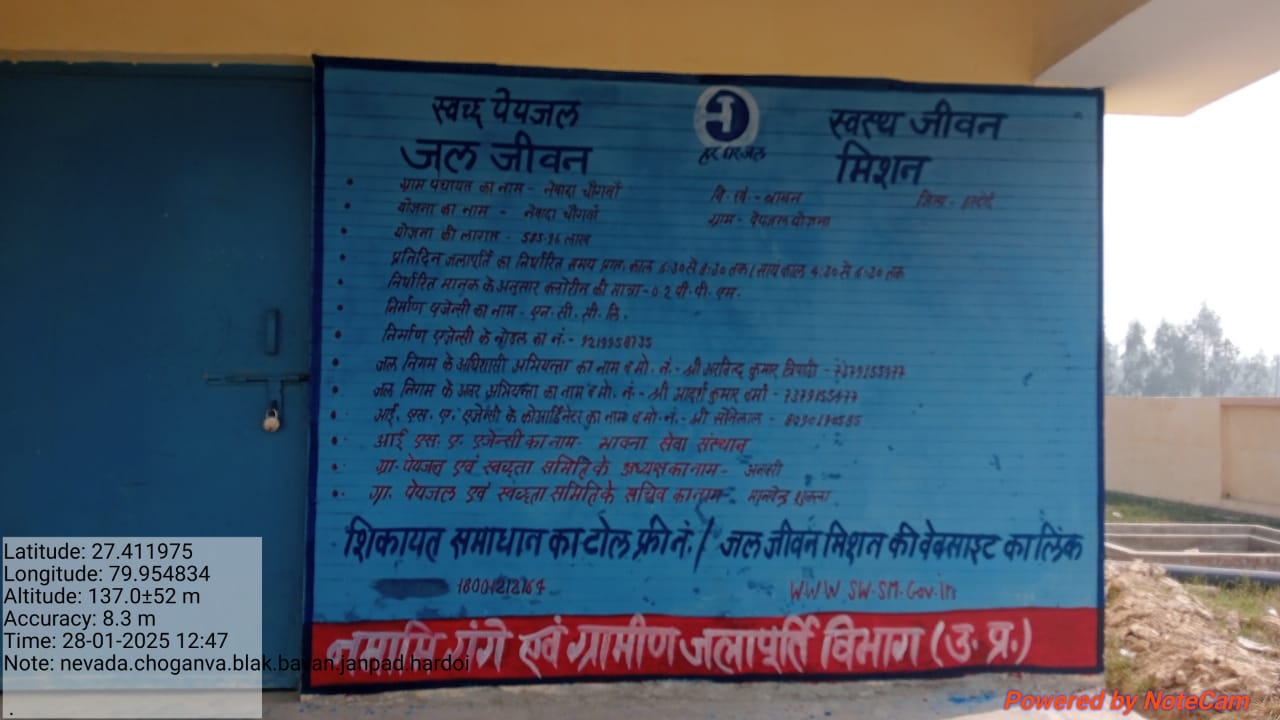 स्वच्छ पेयजल
स्वस्थ जीवन
हर घर जल
जल जीवन
मिशन
• ग्राम पंचायत का नाम - नेवादा चौगवाँ वि. खं. - बावन जिला - हरदोई
• योजना का नाम - नेवादा चौगवाँ ग्राम - पेयजल योजना
• योजना की लागत - 585.96 लाख
• प्रतिदिन जलापूर्ति का निर्धारित समय प्रातः काल 6:30 से 8:30 तक / सायं काल 4:30 से 6:30 तक
• निर्धारित मानक के अनुसार क्लोरीन की मात्रा - 0.2 पी. पी. एम.
• निर्माण एजेन्सी का नाम - एन. सी. सी. लि.
• निर्माण एजेन्सी के नोडल का नं. - 9219958735
• जल निगम के अधिशासी अभियन्ता का नाम व मो. नं. - श्री अरविन्द कुमार त्रिपाठी -
• जल निगम के अवर अभियन्ता का नाम व मो. नं. - श्री आदर्श कुमार वर्मा -
• आई. एस. ए. एजेन्सी के कोआर्डिनेटर का नाम व मो. नं. - श्री
• आई एस. ए. एजेन्सी का नाम - भावना सेवा संस्थान
• ग्रा. पेयजल एवं स्वच्छता समिति के अध्यक्ष का नाम -
• ग्रा. पेयजल एवं स्वच्छता समिति के सचिव का नाम - मानवेन्द्र शुक्ला
शिकायत समाधान का टोल फ्री नं. / जल जीवन मिशन की वेबसाइट का लिंक
18001212164 WWW.SW.SM.Gov.in
नमामि गंगे एवं ग्रामीण जलापूर्ति विभाग (उ. प्र.)
Latitude: 27.411975
Longitude: 79.954834
Altitude: 137.0±52 m
Accuracy: 8.3 m
Time: 28-01-2025 12:47
Note: nevada.choganva.blak.bavan.janpad.hardoi
.
Powered by NoteCam